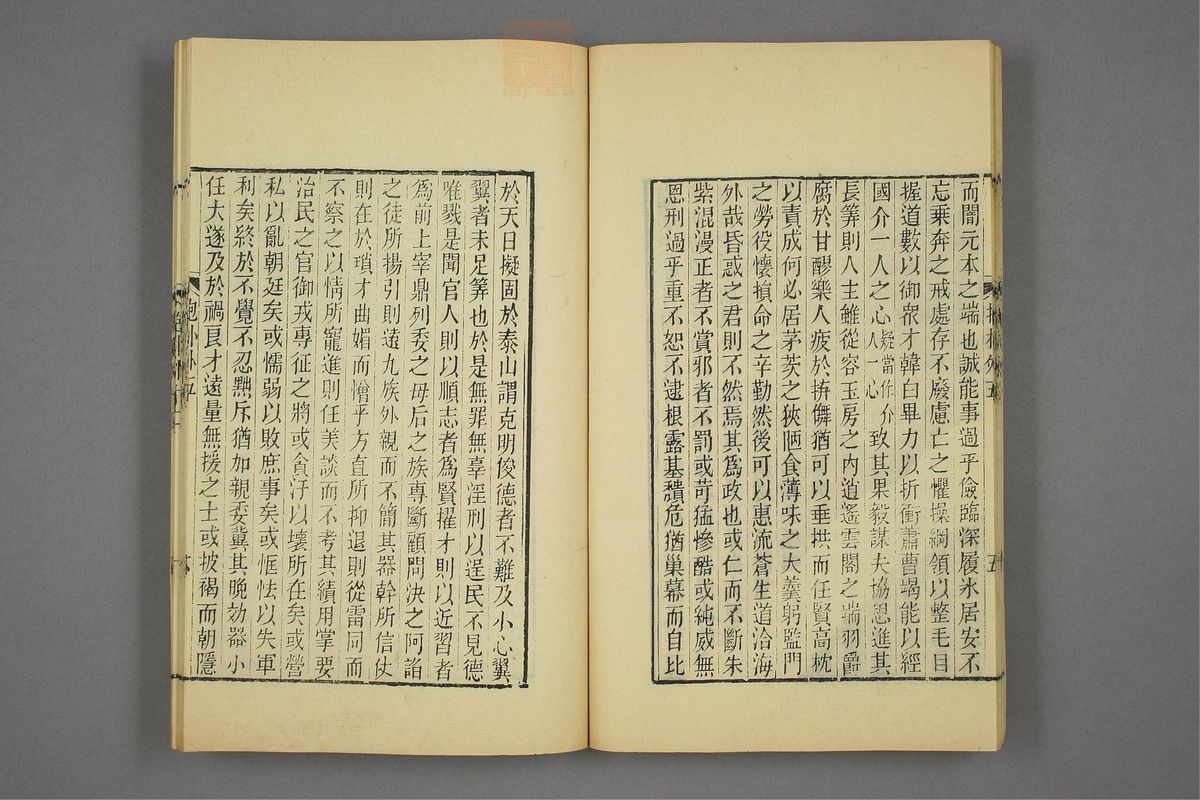 而闇元本之端也誠能事過乎儉臨深履冰居安不
忘乘奔之戒處存不廢慮亡之懼操綱領以整毛目
握道數以御衆才韓白畢力以折衝蕭曹竭能以經
國介一人之心疑當作介人一心致其果毅謀夫協思進其
長筭則人主雖從容玉房之内逍遙雲閣之端羽爵
腐於甘醪樂人疲於拚儛猶可以垂拱而任賢高枕
以責成何必居茅茨之狹陋食薄味之大羹躬監門
之勞役懷損命之辛勤然後可以惠流蒼生道洽海
外哉昏惑之君則不然焉其爲政也或仁而不斷朱
紫混漫正者不賞邪者不罰或苛猛慘酷或純威無
恩刑過乎重不恕不逮根露基穨危猶巢幕而自比
五
於天日擬固於泰山謂克明俊德者不難及小心翼
翼者未足筭也於是無罪無辜淫刑以逞民不見德
唯戮是聞官人則以順志者爲賢擢才則以近習者
爲前上宰鼎列委之毋后之族專斷顧問決之阿諂
之徒所揚引則遠九族外親而不簡其器幹所信仗
則在於瑣才曲媚而憎乎方直所抑退則從雷同而
不察之以情所寵進則任美談而不考其績用掌要
治民之官御戎專征之將或貪汙以壞所在矣或營
私以亂朝廷矣或懦弱以敗庶事矣或恇怯以失軍
利矣終於不覺不忍黜斥猶加親委冀其晚効器小
任大遂及於禍良才遠量無援之士或披褐而朝隱